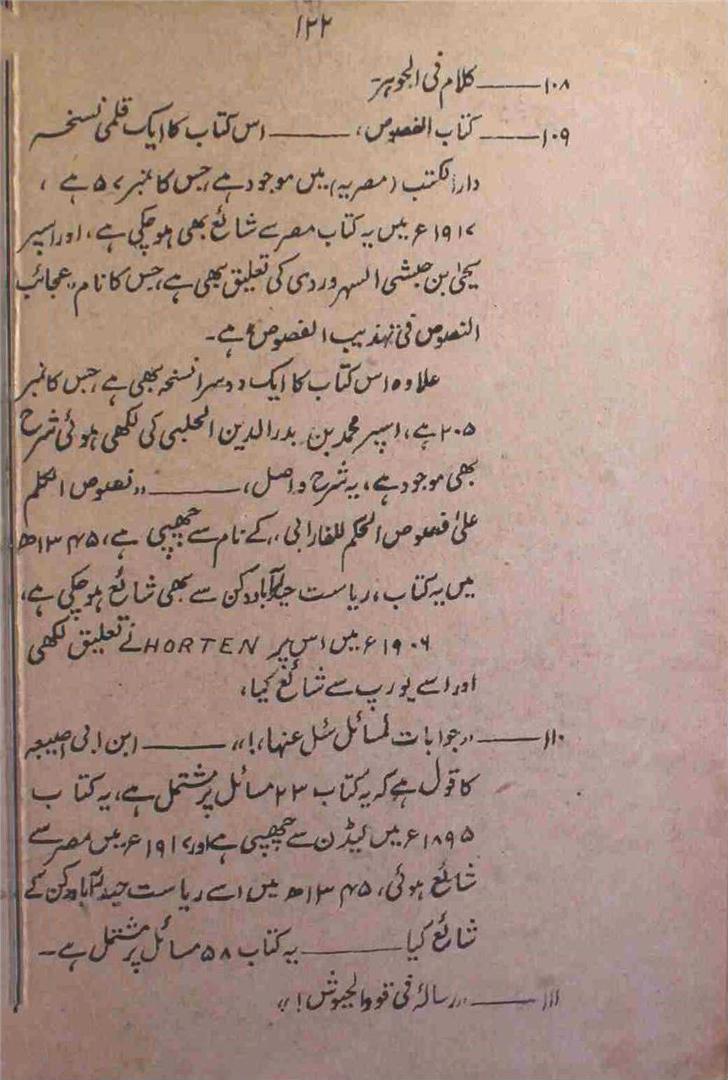 ۱۲۲
۱۰۸ـــــ کلام فی الجوہر۔
۱۰۹ـــــ کتاب الفصوص، ـــــ اس کتاب کا ایک قلمی نسخہ
دار الکتب (مصریہ) میں موجود ہے، جس کا نمبر ۵۷ ہے،
۱۹۱۷ء میں یہ کتاب مصر سے شائع بھی ہو چکی ہے، اور اسپر
یحیٰ بن حبشی السہروردی کی تعلیق بھی ہے، جس کا نام، عجائب
النصوص فی تہذیب الفصوص، ہے۔
علاوہ اس کتاب کا ایک دوسرا نسخہ بھی ہے، جس کا نمبر
۲۰۵ ہے، اسپر محمد بن بدر الدین الحلبی کی لکھی ہوئی شرح
بھی موجود ہے، یہ شرح در اصل، ـــــ ،،نصوص الکلم
علیٰ فصوص الحکم للفارابی،، کے نام سے چھپی ہے، ۱۳۴۵ھ
میں یہ کتاب، ریاست حیدرآباد دکن سے بھی شائع ہو چکی ہے،
۱۹۰۶ء میں اس پر HORTEN نے تعلیق لکھی
اور اسے یورپ سے شائع کیا،
۱۱۰ـــــ ،،جوابات لمسائل سُئل عنہا،!،، ـــــ ابن ابی اصیبعہ
کا قول ہے کہ یہ کتاب ۲۳ مسائل پر مشتمل ہے، یہ کتاب
۱۸۹۵ء میں لیڈن سے چھپی ہے اور ۱۹۱۷ء میں مصر سے
شائع ہوئی، ۱۳۴۵ھ میں اسے ریاست حیدرآباد دکن کے
شائع کیا ـــــ یہ کتاب ۵۸ مسائل پر مشتمل ہے۔
۱۱۱ـــــ ،،رسالۂ فی قود الجیوش!،،